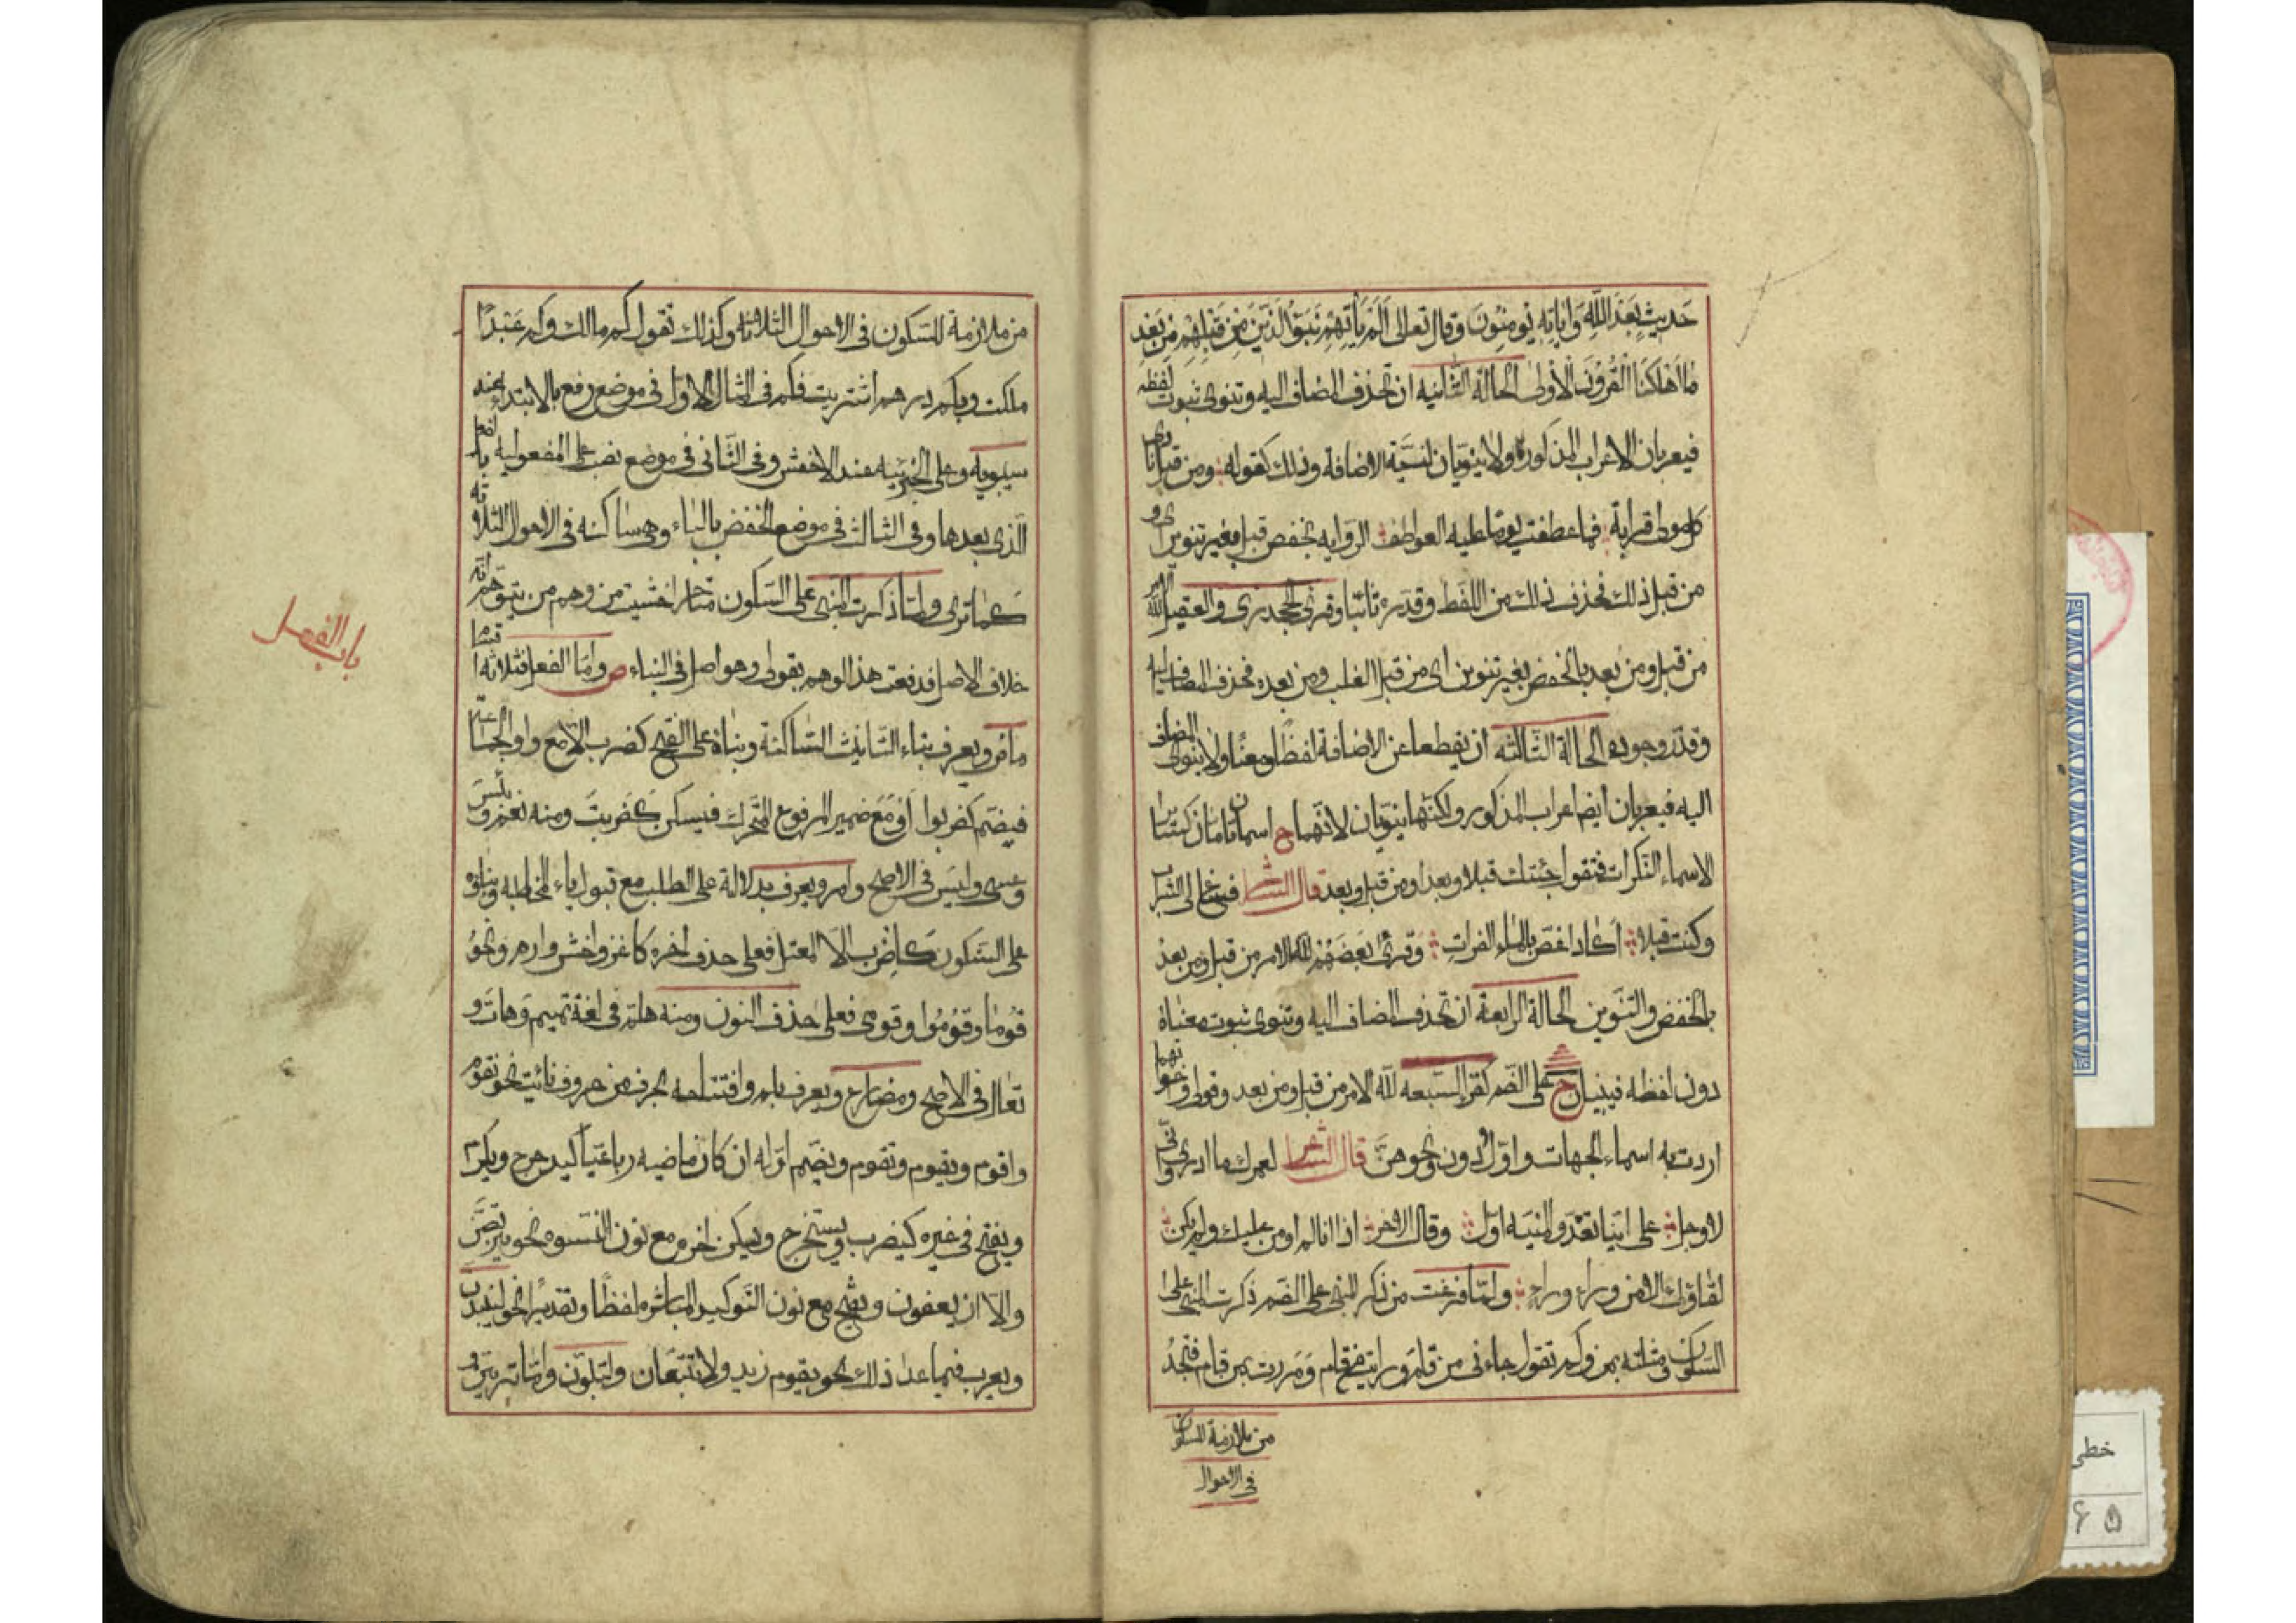 حَديثٍ بَعْدَ اللهِ وَاٰيَاتِهِ يُومِنُونَ وقال تعالى اَلَمْ يَأتِهِمْ نَبَؤُ الَّذِيْنَ مِنْ قَبْلِهِمْ مِنْ بَعْدِ
مٰا اَهْلَكْنَا الْقُرُوْنَ الْاُوْلىٰ الحالة الثّانيه ان تحذف المضاف اليه وتنوى ثبوت لفظه
فيعربان الاعراب المذكورة ولا ينوّنان لنيّة الاضافة وذلك كقوله ومن قبل نادى
كل مولى قرابة فما عطفت يوما عليه العواطف الروايه بخفض قبل بغير تنوين اى و
من قبل ذلك فحذف ذلك من اللفظ وقدره ثابتا وقرئ الجحدرى والعقيل لله الامر
من قبل ومن بعد بالخفض بغير تنوين اى من قبل الغلب ومن بعده فحذف المضاف اليه
وقدّر وجوده الحالة الثّالثه ان يقطعا عن الاضافة لفظًا ومعنًا ولا ينوى المضاف
اليه فيعربان ايضا اعراب المذكور ولكنّها ينوّنان لانّهما ح اسمان تامان كسائر
الاسماء النّكرات فتقول جئتك قبلا وبعدا ومن قبل وبعد قال الشاعر فساغ لى الشراب
وكنت قبلا اكاد اغصّ بالماء الفرات وقرئ بَعْضُهُمْ لله الامر من قبل ومن بعد
بالخفض والتّنوين الحالة الرابعة ان تحذف المضاف اليه وتنوى ثبوت معناة
دون لفظه فيبنيان ح على الضّم كقراءِ السّبعه لله الامر من قبل ومن بعد وقولى ونحوهما
اردت به اسماء الجهات واوّل ودون ونحوهنّ قال الشاعر لعمرك ما ادرى وانّى
لاوجل على ايّنا تَعْدُو المنيّه اوّل وقال الاخر اذا انا لم اومن عليك ولم يكن
لقاؤك الا من وراء وراء ولمّا فرغت من ذكر المبنى على الضّم ذكرت المبنى على
السكون ومثلته بمن وكم تقول جاءنى من قام ورايت من قام وَمَررت بمن قام فتجدُ
من ملازمة للسكون
فى الاحوال
من ملازمة للسّكون فى الاحوال الثلاثة وكذلك تقول كم مالك وكم عَبْدًا
ملكت وبكم درهم اشتريت فكم فى المثال الاوّل فى موضع رفع بالابتداء عند
سيبويه وعلى الخبريّه عند الاخفش وفى الثّانى فى موضع نصب على المفعوليه بالفعل
الّذى بعدها وفى الثالث فى موضع الخفض بالباء وهى ساكنه فى الاحوال الثلاثه
كما ترى ولمّا ذكرت المبنى على السّكون متاخرا خشيت من وهم من يتوهّم انّه
خلاف الاصل فدفعت هذا الوهم بقولى وهو اصل فى البناء ص وامّا الفعل فثلاثة اقسام
ماض ويعرف بتاء التّانيث السّاكنة وبناؤه على الفتح كضرب الا مع واو الجماعة
فيضمّ كضربوا اَوْ مَعَ ضمير المرفوع المتحرّك فيسكن كضربتَ ومنه نعم وبئسَ
وعسى وليس فى الاصح وامر ويعرف بدلالة على الطلب مع قبول ياء المخاطبة وبناؤه
على السّكون كاضرب الّا المعتل فعلى حذف اخره كاغز واخش وارم ونحوُ
قُومٰا وقُوْمُوا وقومى فعلى حذف النون ومنه هلمّ فى لغة تميم وَهاتَ و
تعٰال فى الاصح ومضارع ويعرف بلم وافتتاحه بحرف من حروف نأيت نحو نقوم
واقوم ويقوم وتقوم ويضم اوّله ان كان ماضيه رباعيّا كيدحرج ويكرم
ويفتح فى غيره كيضرب ويستخرج ويسكن اخره مع نون النّسوه نحو يتربّصن
والّا ان يعفون ويفتح مع نون التّوكيد المباشره لفظًا وتقديرًا نحو لينبذنّ
ويعرب فيما عدا ذلك نحو يقوم زيد ولا تتّبعان ولتبلونّ وامّا ترينّ و
باب الفعل
خطى
۶۵